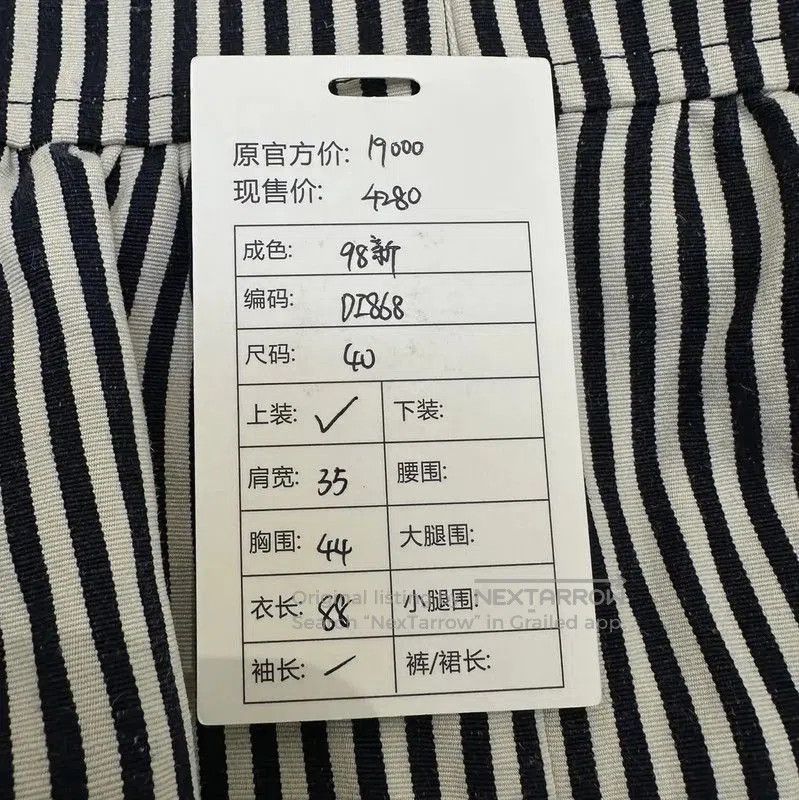 原官方价: 19000
现售价: 4280
成色: 98新
编码: DI868
尺码: 40
上装: ✓ 下装:
肩宽: 35 腰围:
胸围: 44 大腿围:
衣长: 88 小腿围:
袖长: / 裤/裙长:
Original listing NEXTARROW
Search "NexTarrow" in Grailed app